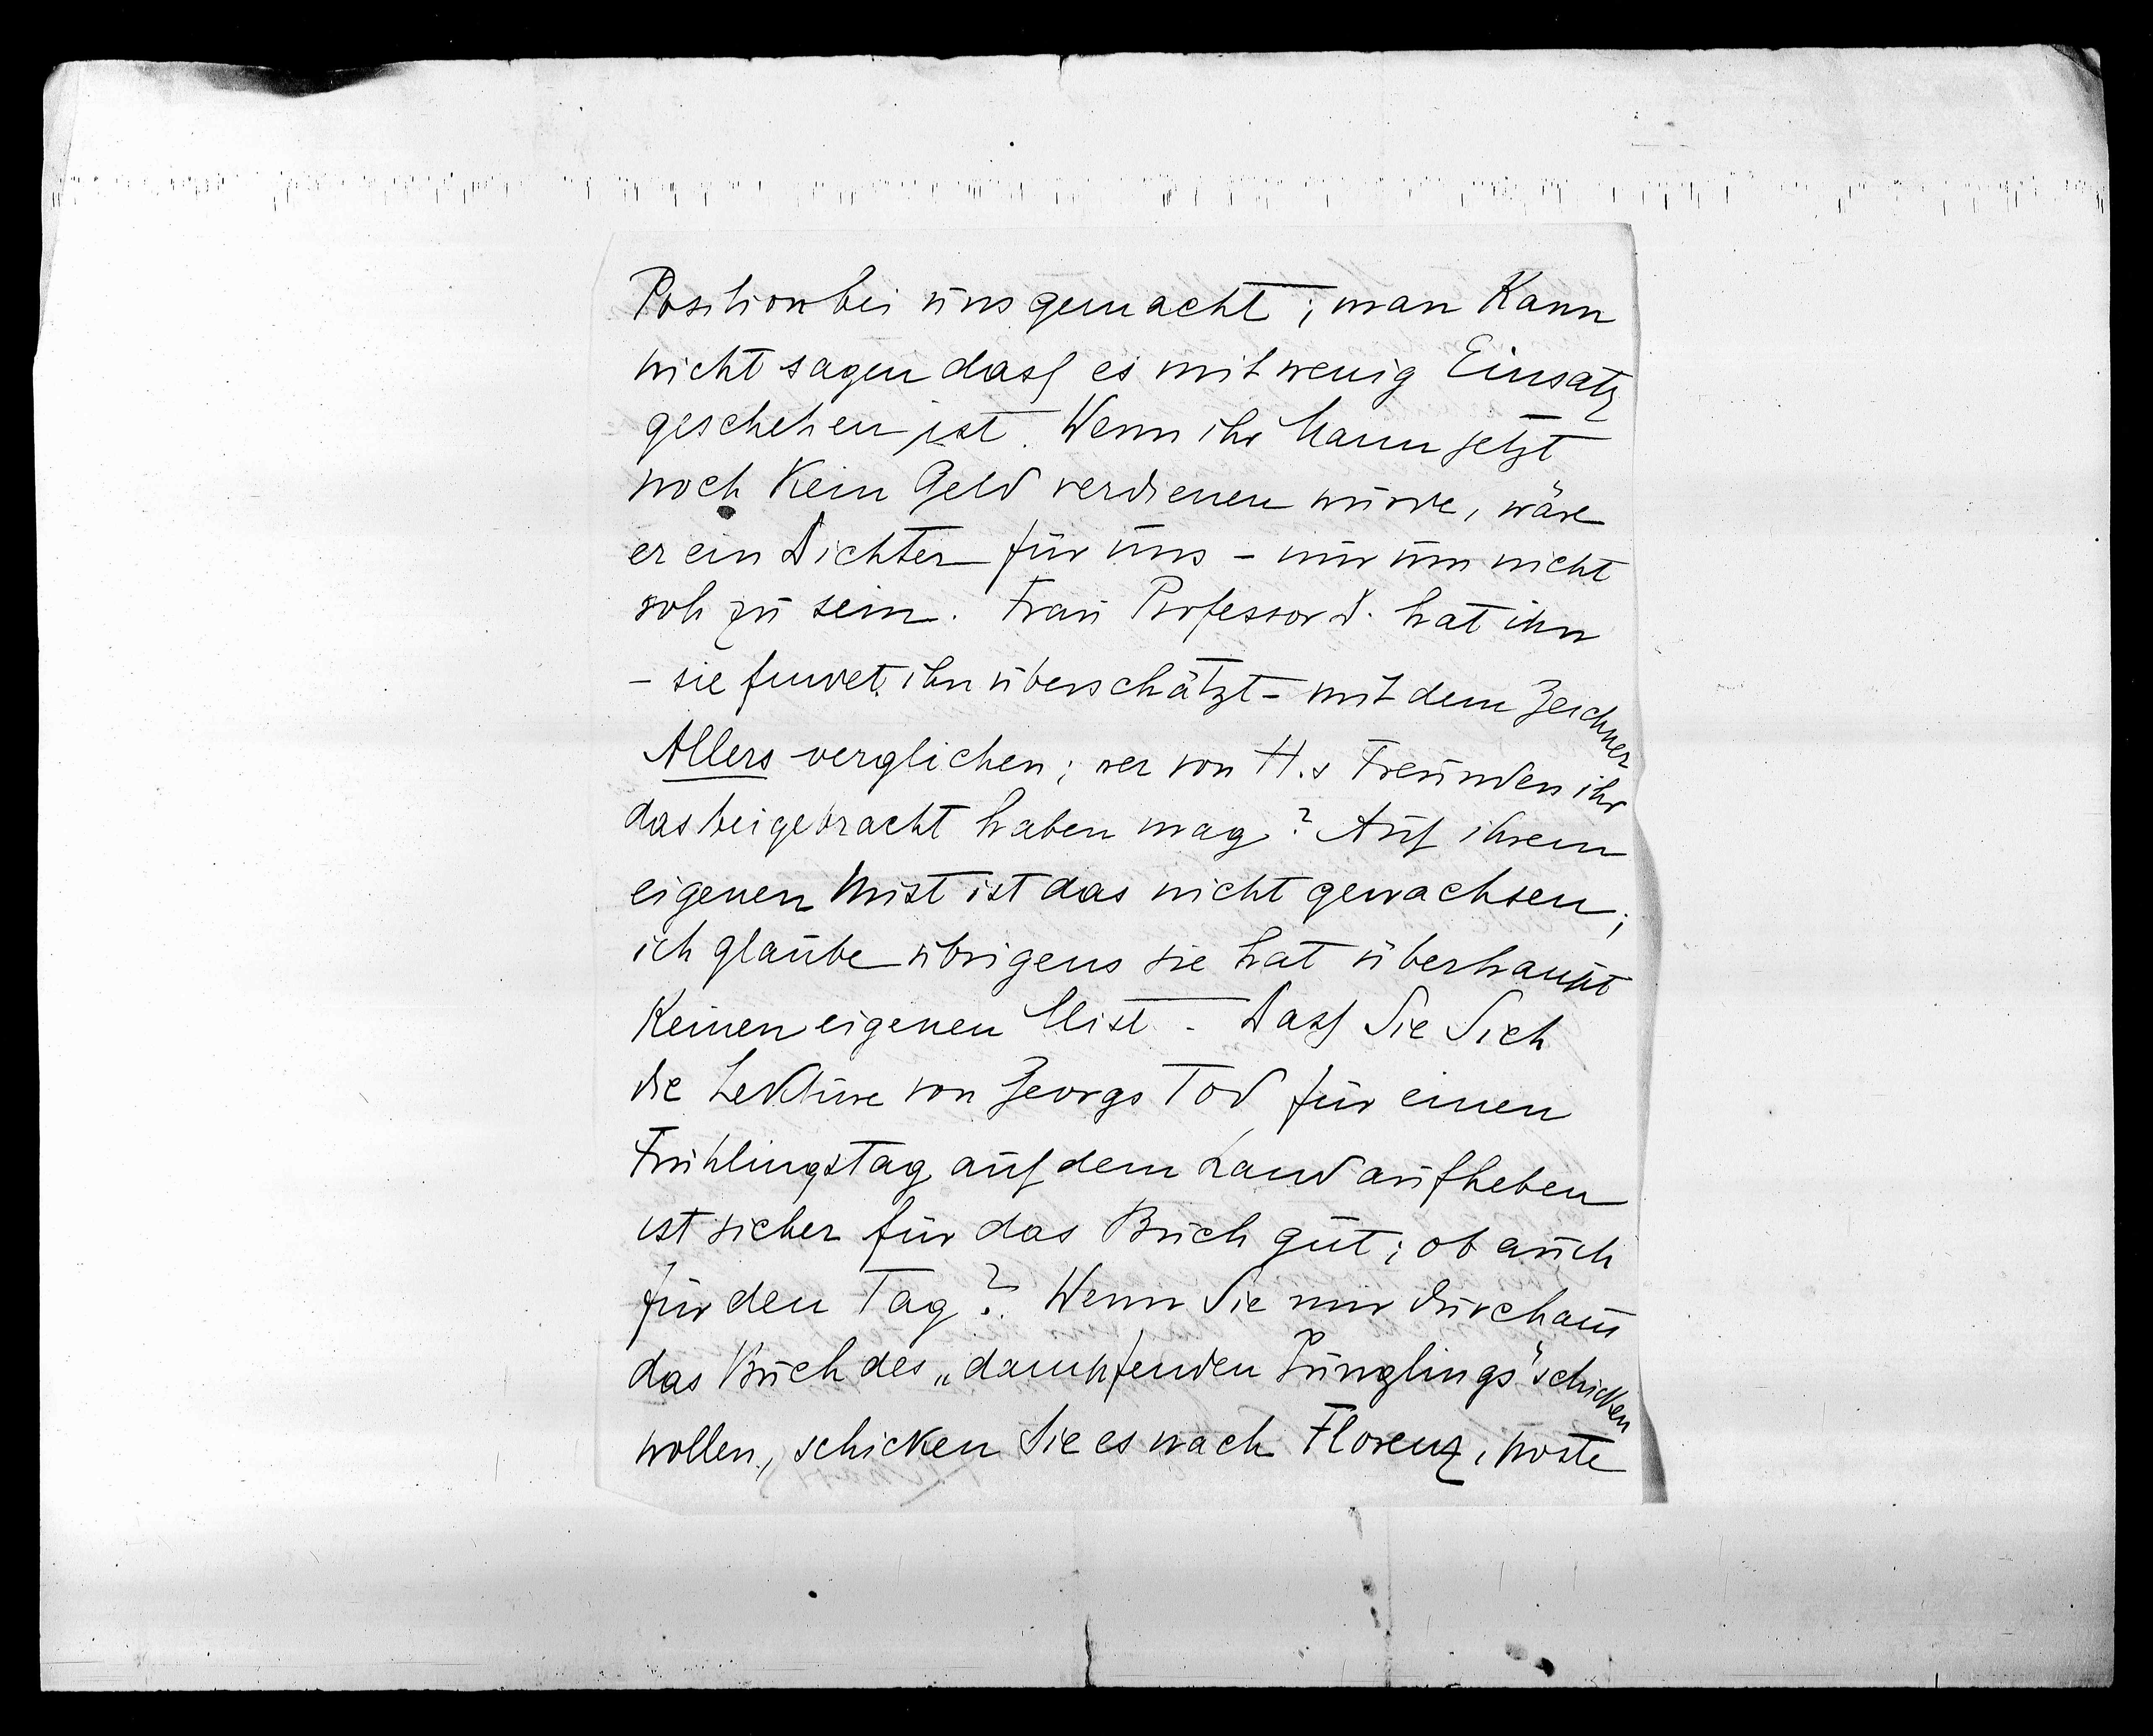 Position bei uns gemacht; man kann
nicht sagen dass es mit wenig Einsatz
geschehen ist. Wenn ihr Mann jetzt
noch kein Geld verdienen würde, wäre
er ein Dichter für uns – nur um nicht
roh zu sein. Frau Professor D. hat ihn
– sie findet ihn überschätzt – mit dem Zeichner
Allers verglichen; wer von H.s Freunden ihr
das beigebracht haben mag? Auf ihrem
eigenen Mist ist das nicht gewachsen;
ich glaube übrigens sie hat überhaupt
keinen eigenen Mist. – Dass Sie Sich
die Lektüre von Georgs Tod für einen
Frühlingstag auf dem Land aufheben
ist sicher für das Buch gut; ob auch
für den Tag? Wenn Sie mir durchaus
das Buch des „dampfenden Jünglings" schicken
wollen, schicken Sie es nach Florenz, poste